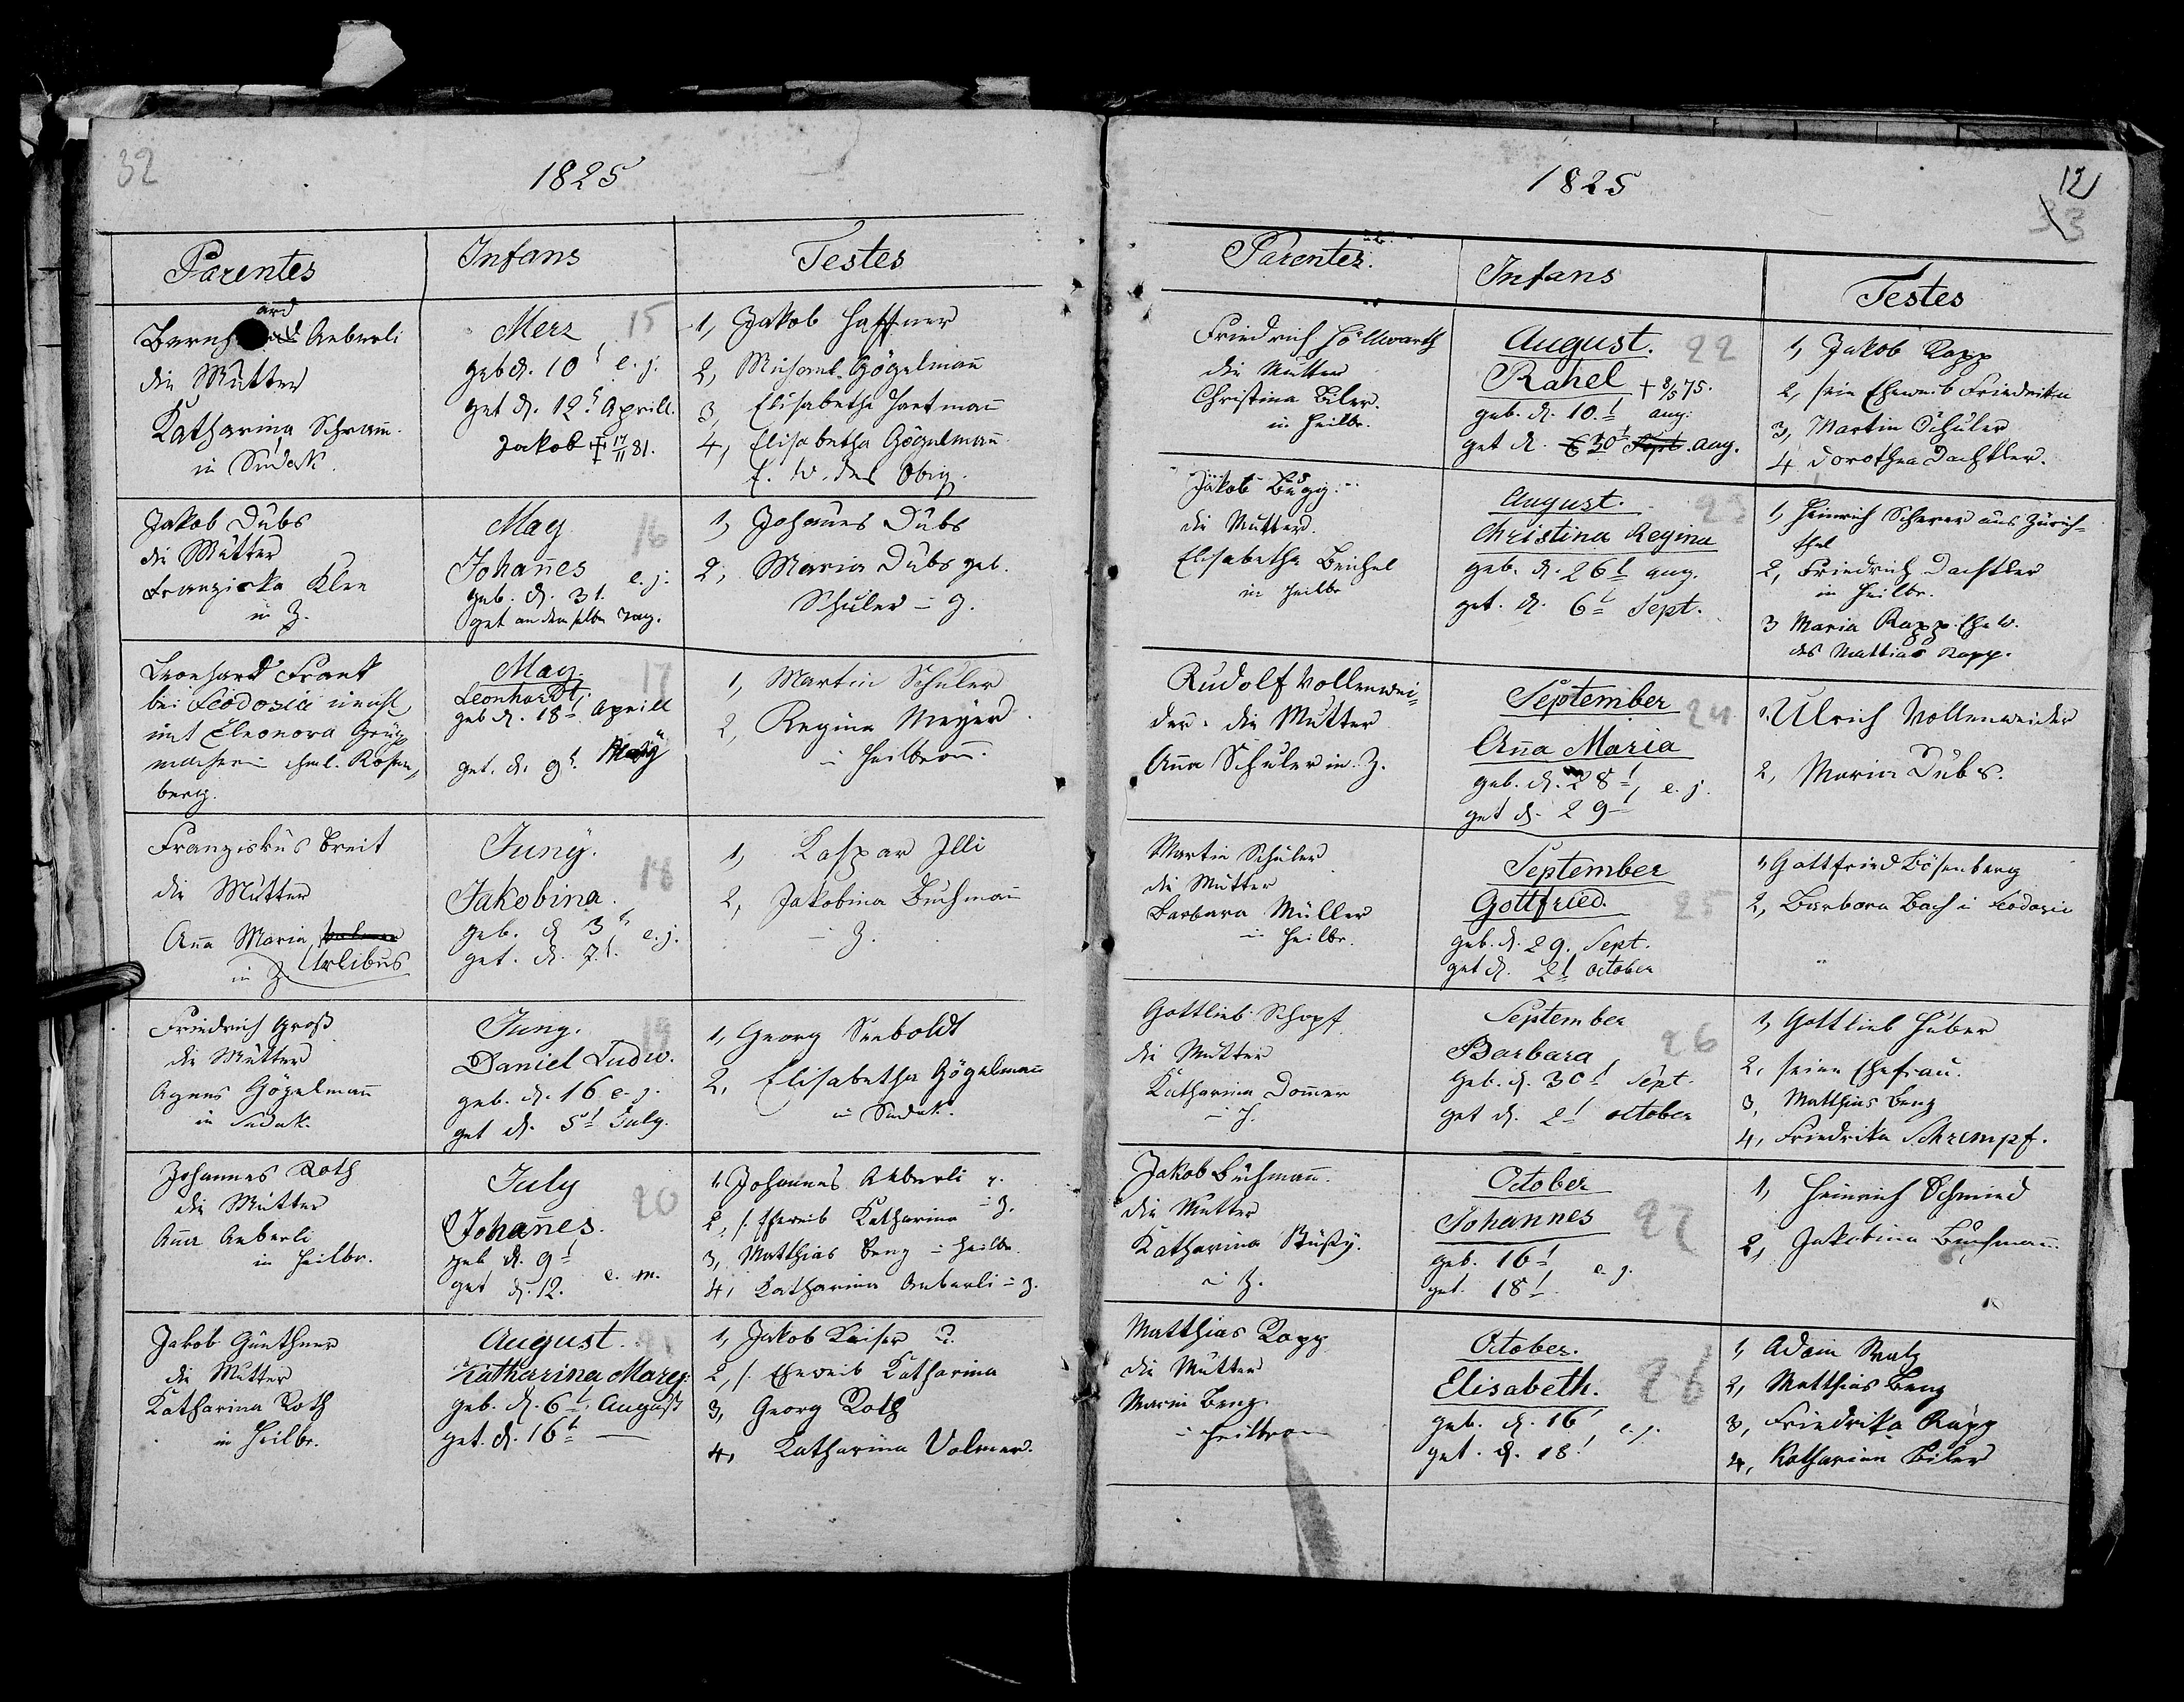 32
1825
Parentes
Infans
Testes
ard
Bernh Aeberli
die Mutter
Katharina Schram̄.
in Sudak.
Merz 15
geb d. 10t e. j.
get d. 12t Aprill.
Jakob ‡ 17/11 81.
1, Jakob Haffner
2, Michael Gögelman̄
3, Elisabetha Hartman̄
4, Elisabetha Gögelman̄
E. W. des Obig.
Jakob Dubs
die Mutter
Franziska Klee
in Z.
May 16
Johan̄es
geb. d. 31. e. j.
get an demselben Tag.
1, Johan̄es Dubs
2, Maria Dubs geb.
Schuler in Z.
Leonhard Frank
bei Feodosia
mit Eleonora
Rosen-
berg.
May. 17
Leonhardt.
geb d. 18t Aprill
get. d. 9t May
1, Martin Schuler
2, Regina Meyer
in Heilbron̄
Franziskus Breit
die Mutter
Anna Maria
in Z. Urlibus
Juny. 18
Jakobina.
geb. d 3t e. j.
get. d. 7t.
1, Kaspar Illi
2, Jakobina Buchman̄
in Z.
Friedrich Groß
die Mutter
Agnes Gögelman̄
in Sudak.
Juny. 19
Daniel Ludw.
geb. d. 16 e. j.
get d. 5t July.
1, Georg Seeboldt
2, Elisabetha Gögelman̄
in Sudak.
Johannes Roth
die Mutter
Anna Aeberli
in Heilbr.
July 20
Johan̄es.
geb d. 9t
get d. 12. e. m.
1. Johannes Aeberli
2, s. Eheweib Katharina in Z.
3, Matthias Beng in Heilbr.
4, Katharina Aeberli in Z.
Jakob Günthner
die Mutter
Katharina Roth
in Heilbr.
August. 21
Katharina Marg.
geb. d. 6t August
get. d. 16t —
1, Jakob Kaiser
2, s. Eheweib Katharina
3, Georg Roth
4, Katharina Volmer.
1825
12
33
Parentes.
Infans
Testes
Friedrich Höllwarth
die Mutter
Christina Biler.
in Heilbr.
August. 22
Rahel + 8/5 75.
geb. d. 10.t aug:
get d. 30t Sept. aug.
1, Jakob Rapp
2, sein Eheweib Friedrika
3, Martin Schuler
4 Dorothea Dachtler.
Jakob Bugg.
die Mutter
Elisabetha Beichel
in Heilbr
August. 23
Christina Regina
geb. d. 26t aug.
get. d. 6t Sept.
1, Heinrich Scherer aus Zürich-
thal
2, Friedrich Dachtler
in Heilbr.
3 Maria Rapp Ehe W.
des Mattias Rapp.
Rudolf Vollenwei-
der. die Mutter
An̄a Schuler in Z.
September 24
An̄a Maria
geb. d. 28t e. j.
get d. 29t
1. Ulrich Vollenweider
2, Maria Dubs.
Martin Schuler
die Mutter
Barbara Müller
in Heilbr.
September
Gottfried. 25
geb. d. 29. Sept.
get d. 2t october
1, Gottfried Bösenberg
2, Barbara Bach in Feodosia
Gottlieb Schopf
die Mutter
Katharina Dom̄er
in H.
September
Barbara 26
geb. d. 30t Sept.
get d. 2t october
1, Gottlieb Huber
2, seine Ehefrau.
3, Matthias Beng
4, Friedrika Schrempf.
Jakob Buchman̄.
die Mutter
Katharina Stüßy.
in Z.
October
Johannes 27
geb. 16t e. j.
get. 18t
1, Heinrich Schmied
2, Jakobina Buchman̄
Matthias Rapp
die Mutter
Maria Beng
in Heilbron
October.
Elisabeth. 28
geb. d. 16t e. j.
get. d. 18t
1, Adam Walz
2, Matthias Beng
3, Friedrika Rapp
4, Katharina Biler